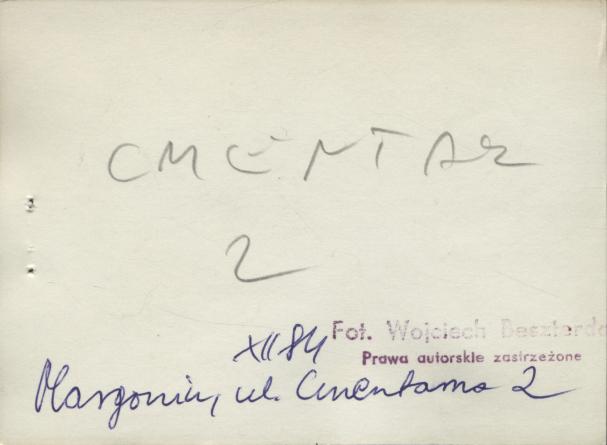 CMENTAR
2
XII 84
Fot. Wojciech Beszterda
Prawa autorskie zastrzeżone
Margonin, ul. Cmentarna 2